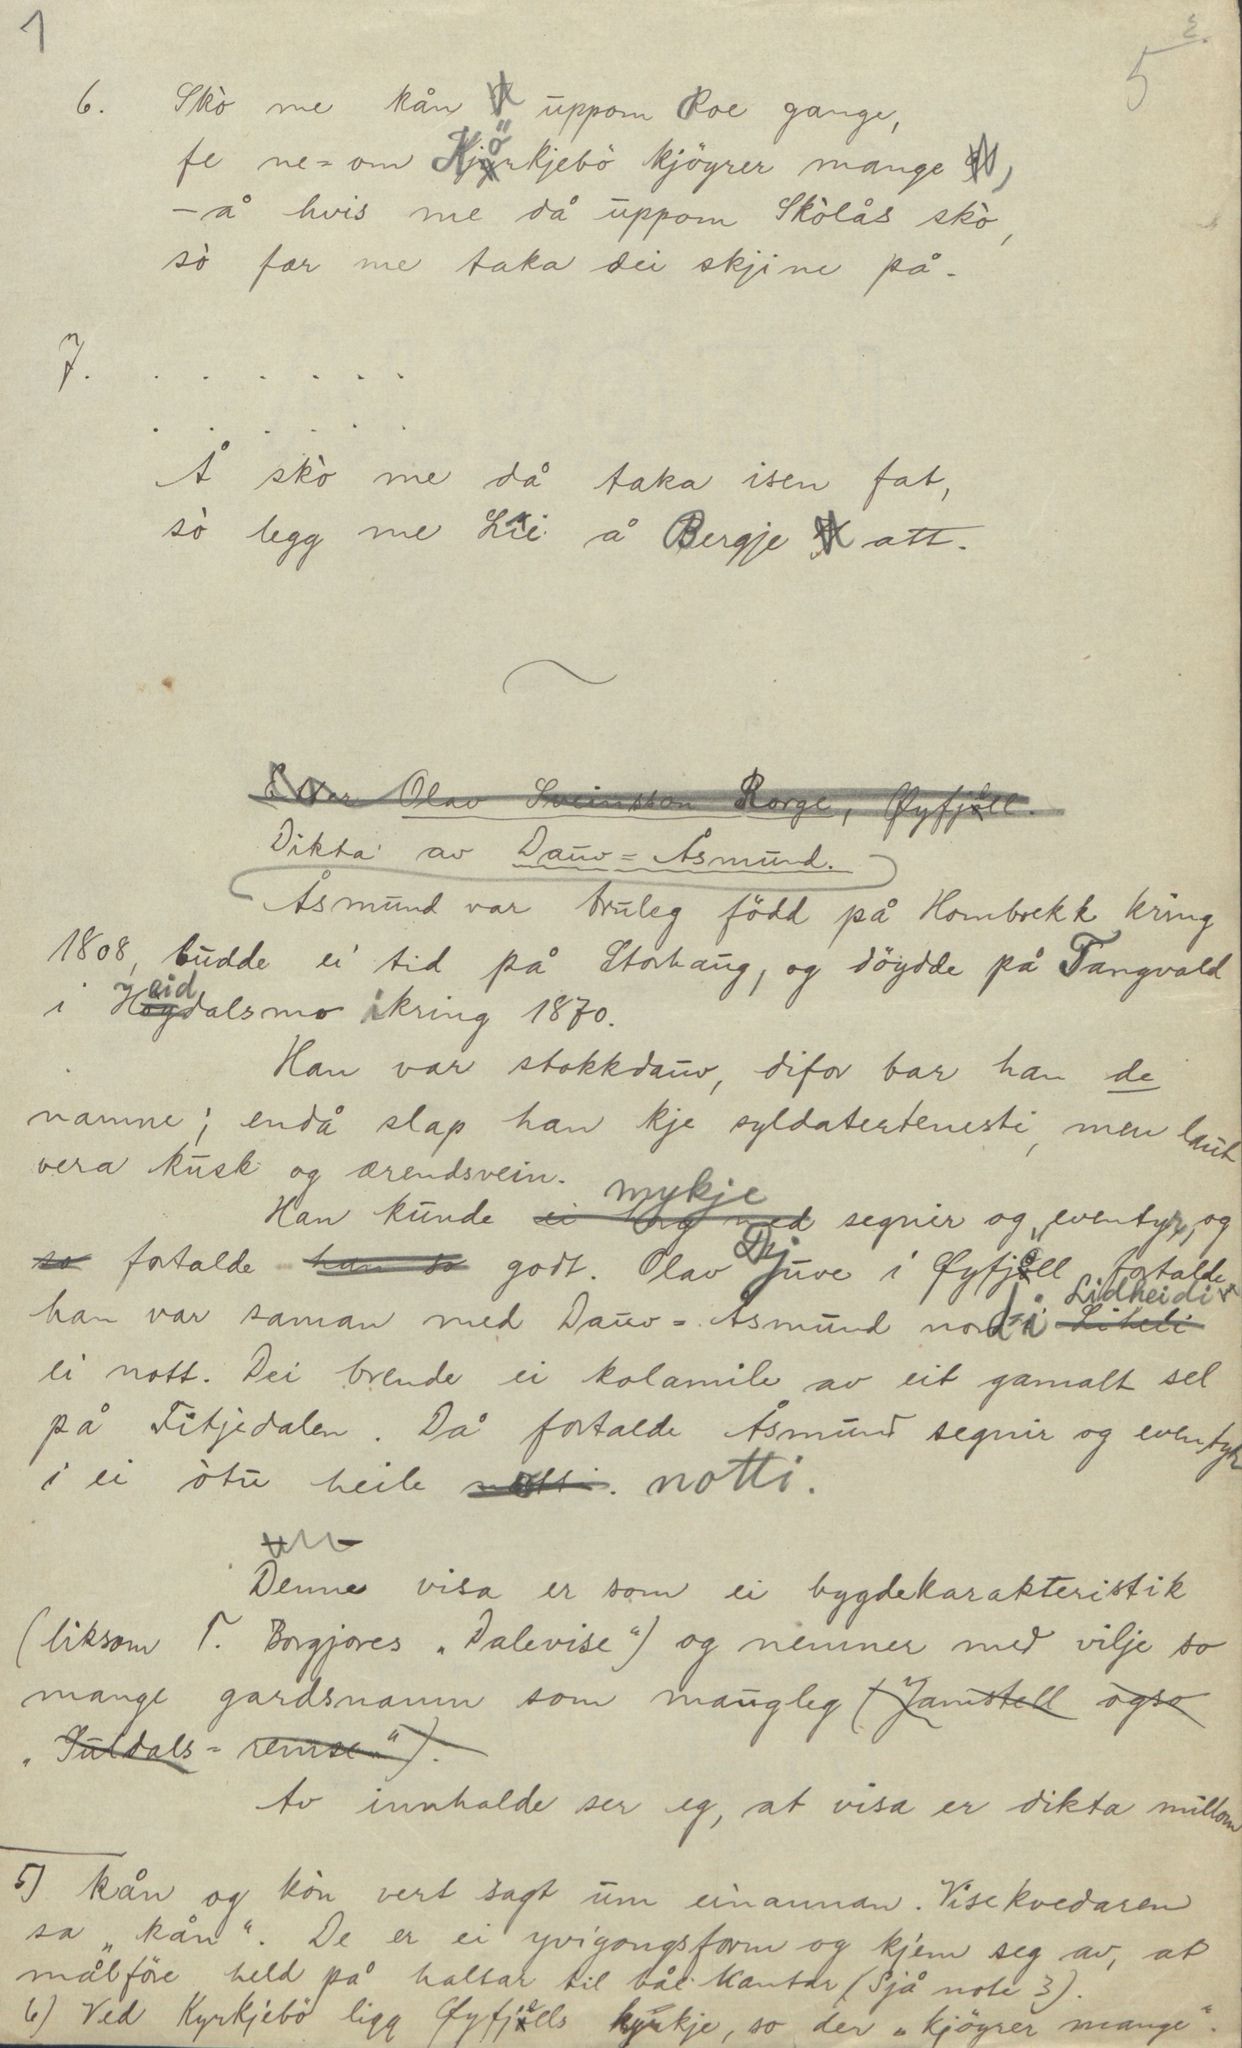 1
5
6. Skò me kån uppom Roe gange,
fe ne=om Kjörkjebö kjöyrer mange,
– å hvis me då uppom Skòlås skò,
sò fær me taka dei skjine på.
7. . . . . . . .
. . . . . .
Å skò me då taka isen fat,
sò legg me Lii å Bergje att.
Etter Olav Sveinsson Rorge, Øyfjell.
Dikta av Dauv=Åsmund.
Åsmund var truleg född på Hombrekk kring
1808, budde ei tid på Storhaug, og döydde på Tangvald
i Høydalsmo ikring 1870.
Han var stokkdauv, difor bar han de
namne; endå slap han kje syldatertenesti, men laut
vera kusk og ærendsvein.
mykje
Han kunde ei meg med segnir og eventyr, og
so fortalde han so godt. Olav Djuve i Øyfjell fortalde
Lidheidi
han var saman med Dauv=Åsmund nordi Liheli
ei nott. Dei brende ei kolamile av eit gamalt sel
på Fitjedalen. Då fortalde Åsmund segnir og eventyr
i ei òtu heile notti. notti.
Denne visa er som ei bygdekarakteristik
(liksom T. Borgjores „Dalevise“) og nemner med vilje so
mange gardsnamn som maugleg (Jamstell ogso
„Suldals=remse“).
Av innhalde ser eg, at visa er dikta millom
5) kån og kòn vert sagt um einannan. Visekvedaren
sa „kån“. De er ei yvigongsform og kjem seg av, at
målföre held på haltar til bål kantar (Sjå note 3).
6) Ved Kyrkjebö ligg Øyfjells kyrkje, so der „kjöyrer mange“.